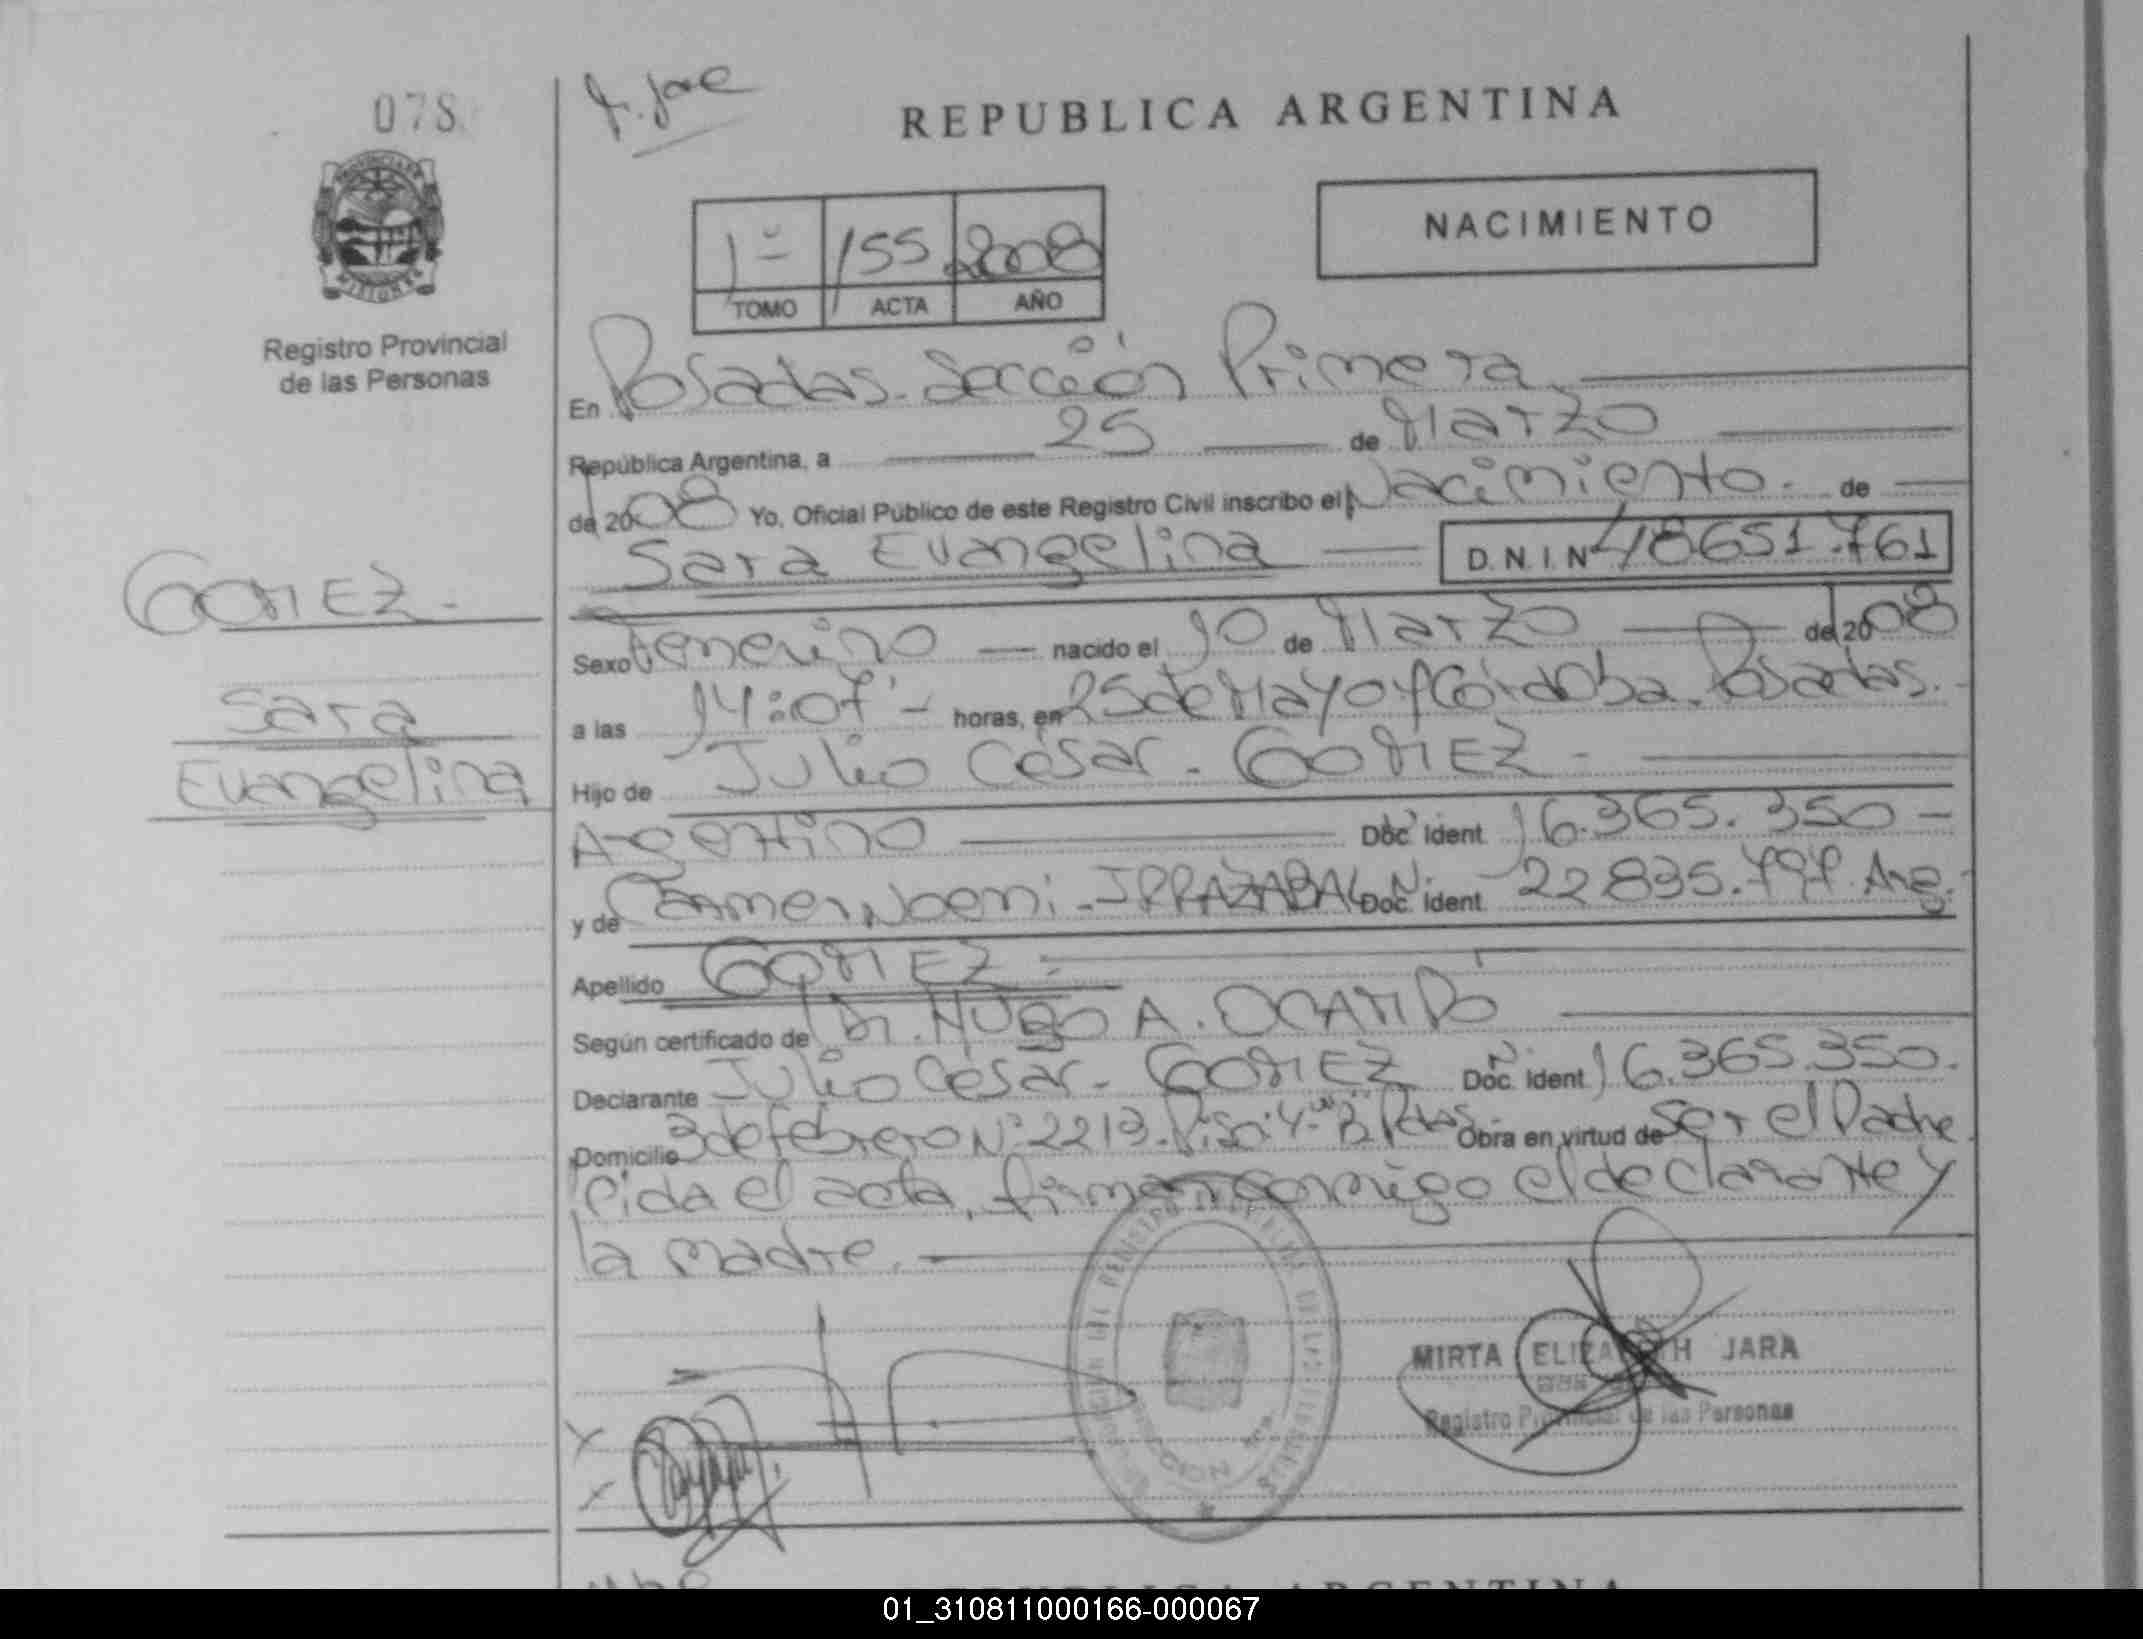 078
REPUBLICA ARGENTINA
NACIMIENTO
1º 155 2008
TOMO ACTA AÑO
Registro Provincial
de las Personas
En Posadas. Sección Primera
República Argentina, a 25 de Marzo
de 2008 Yo, Oficial Público de este Registro Civil inscribo el Nacimiento. de
Sara Evangelina D.N.I. Nº 48651.761
GOMEZ.
Sara
Evangelina
Sexo Femenino nacido el 10 de Marzo de 2008
a las 14:07'- horas, en 25 de Mayo y Córdoba. Posadas.
Hijo de Julio César. GOMEZ.
Argentino Doc. Ident. 16.365.350-
y de Carmen Noemi. IRRAZABAL Doc. Ident. 22835.797. Arg.
Apellido GOMEZ.
Según certificado de Dr. HUGO A. OCAMPO
Declarante Julio César. GOMEZ Doc. Ident. 16.365.350.
Domicilio 3 de febrero Nº 2213. Piso: 4-"B" Pdas Obra en virtud de Ser el Padre
Leida el acta, firman conmigo el declarante y
la madre.
MIRTA ELIZABETH JARA
Registro Provincial de las Personas
REPUBLICA ARGENTINA
01_310811000166-000067